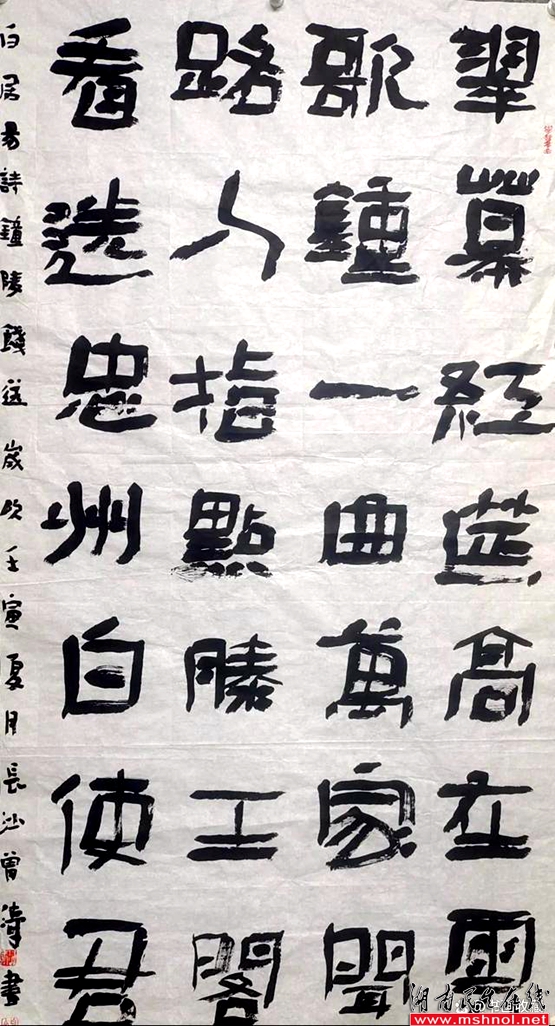 翠幕紅筵高在雲
歌鍾一曲萬家聞
路人指點滕王閣
看送忠州白使君
白居易詩鐘陵餞送歲次壬寅夏月長沙曾濤書
湖南民生在线
www.mshnol.net